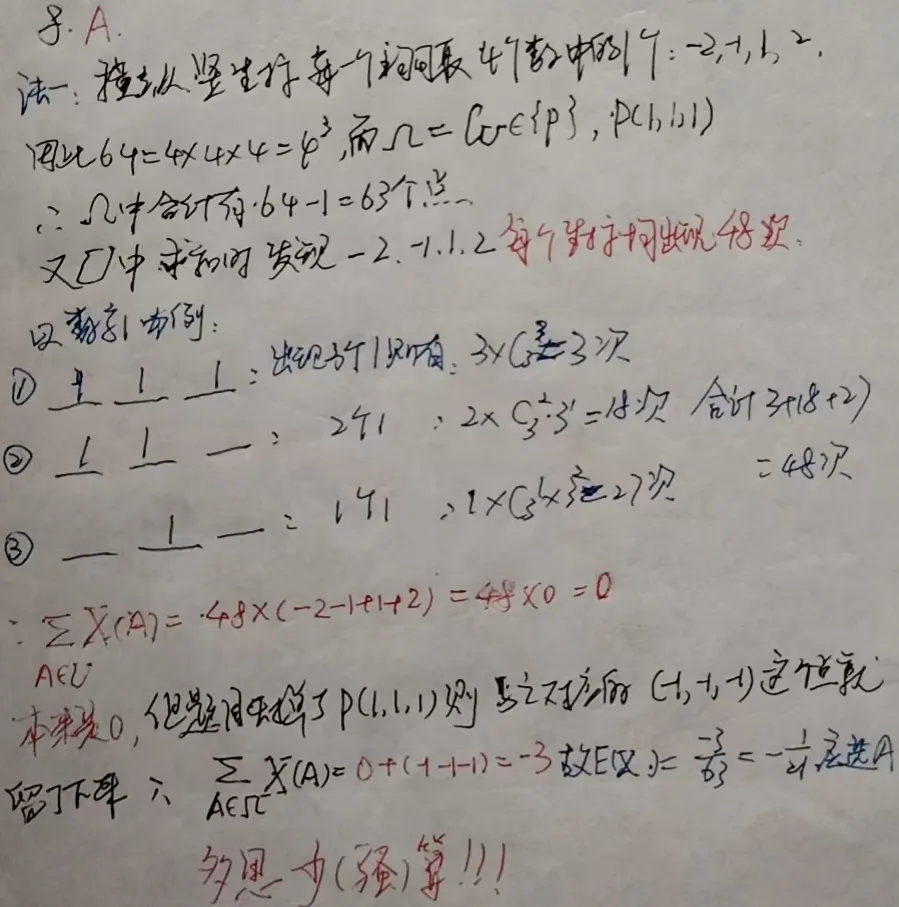 8. A.
法一: 横纵竖坐标每一个都可取4个数中的1个: -2,-1,1,2,
因此64=4×4×4=4³,而Ω=∁ᵤ{P}, P(1,1,1)
∴ Ω中合计有64-1=63个点
又U中求和时发现-2.-1.1.2每个坐标均出现48次.
以数字1为例:
① 1 1 1 : 出现3个1则有: 3×C₃³=3次
② 1 1 __ : 2个1 : 2×C₃²·3¹=18次 合计3+18+27
=48次
③ __ 1 __ : 1个1 : 1×C₃¹×3²=27次
∴ ∑ X(A)=48×(-2-1+1+2)=48×0=0
A∈U
本来是0,但是题目去掉了P(1,1,1)则与之对应的(-1,-1,-1)这个点就
留了下来 ∴ ∑ X(A)=0+(-1-1-1)=-3 故E(X)=-3/63=-1/21 应选A
A∈Ω
多思少(骚)算!!!